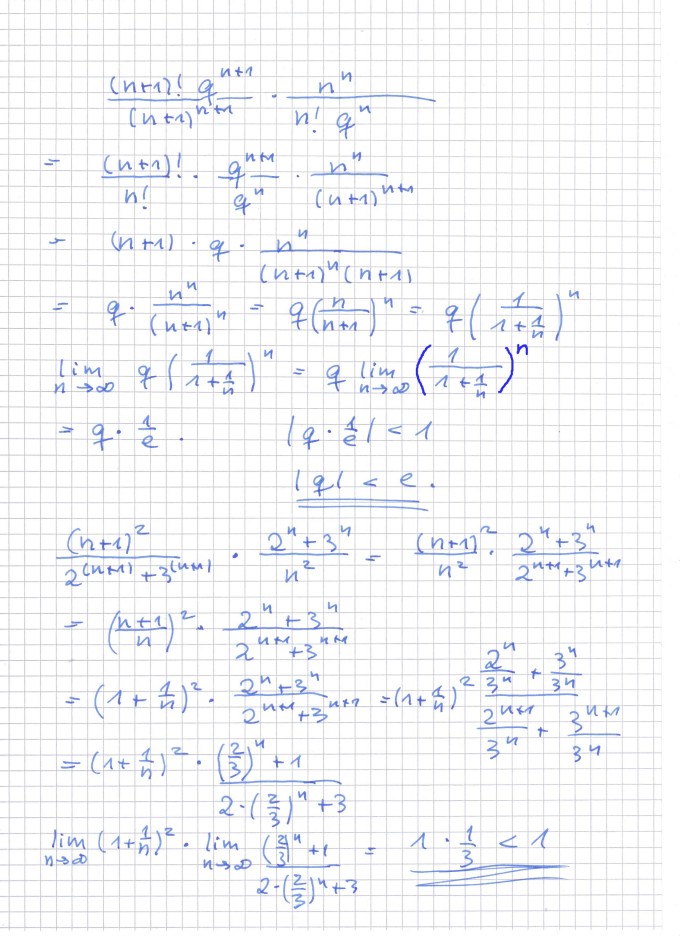 \frac{(n+1)! q^{n+1}}{(n+1)^{n+1}} \cdot \frac{n^n}{n! q^n}
= \frac{(n+1)!}{n!} \cdot \frac{q^{n+1}}{q^n} \cdot \frac{n^n}{(n+1)^{n+1}}
= (n+1) \cdot q \cdot \frac{n^n}{(n+1)^n (n+1)}
= q \cdot \frac{n^n}{(n+1)^n} = q \left(\frac{n}{n+1}\right)^n = q \left(\frac{1}{1+\frac{1}{n}}\right)^n
\lim_{n \to \infty} q \left(\frac{1}{1+\frac{1}{n}}\right)^n = q \lim_{n \to \infty} \left(\frac{1}{1+\frac{1}{n}}\right)^n
= q \cdot \frac{1}{e} . |q \cdot \frac{1}{e}| < 1
|q| < e .
\frac{(n+1)^2}{2^{(n+1)}+3^{(n+1)}} \cdot \frac{2^n+3^n}{n^2} = \frac{(n+1)^2}{n^2} \cdot \frac{2^n+3^n}{2^{n+1}+3^{n+1}}
= \left(\frac{n+1}{n}\right)^2 \cdot \frac{2^n+3^n}{2^{n+1}+3^{n+1}}
= \left(1+\frac{1}{n}\right)^2 \cdot \frac{2^n+3^n}{2^{n+1}+3^{n+1}} = \left(1+\frac{1}{n}\right)^2 \frac{\frac{2^n}{3^n}+\frac{3^n}{3^n}}{\frac{2^{n+1}}{3^n}+\frac{3^{n+1}}{3^n}}
= \left(1+\frac{1}{n}\right)^2 \cdot \frac{\left(\frac{2}{3}\right)^n+1}{2 \cdot \left(\frac{2}{3}\right)^n+3}
\lim_{n \to \infty} \left(1+\frac{1}{n}\right)^2 \cdot \lim_{n \to \infty} \frac{\left(\frac{2}{3}\right)^n+1}{2 \cdot \left(\frac{2}{3}\right)^n+3} = 1 \cdot \frac{1}{3} < 1